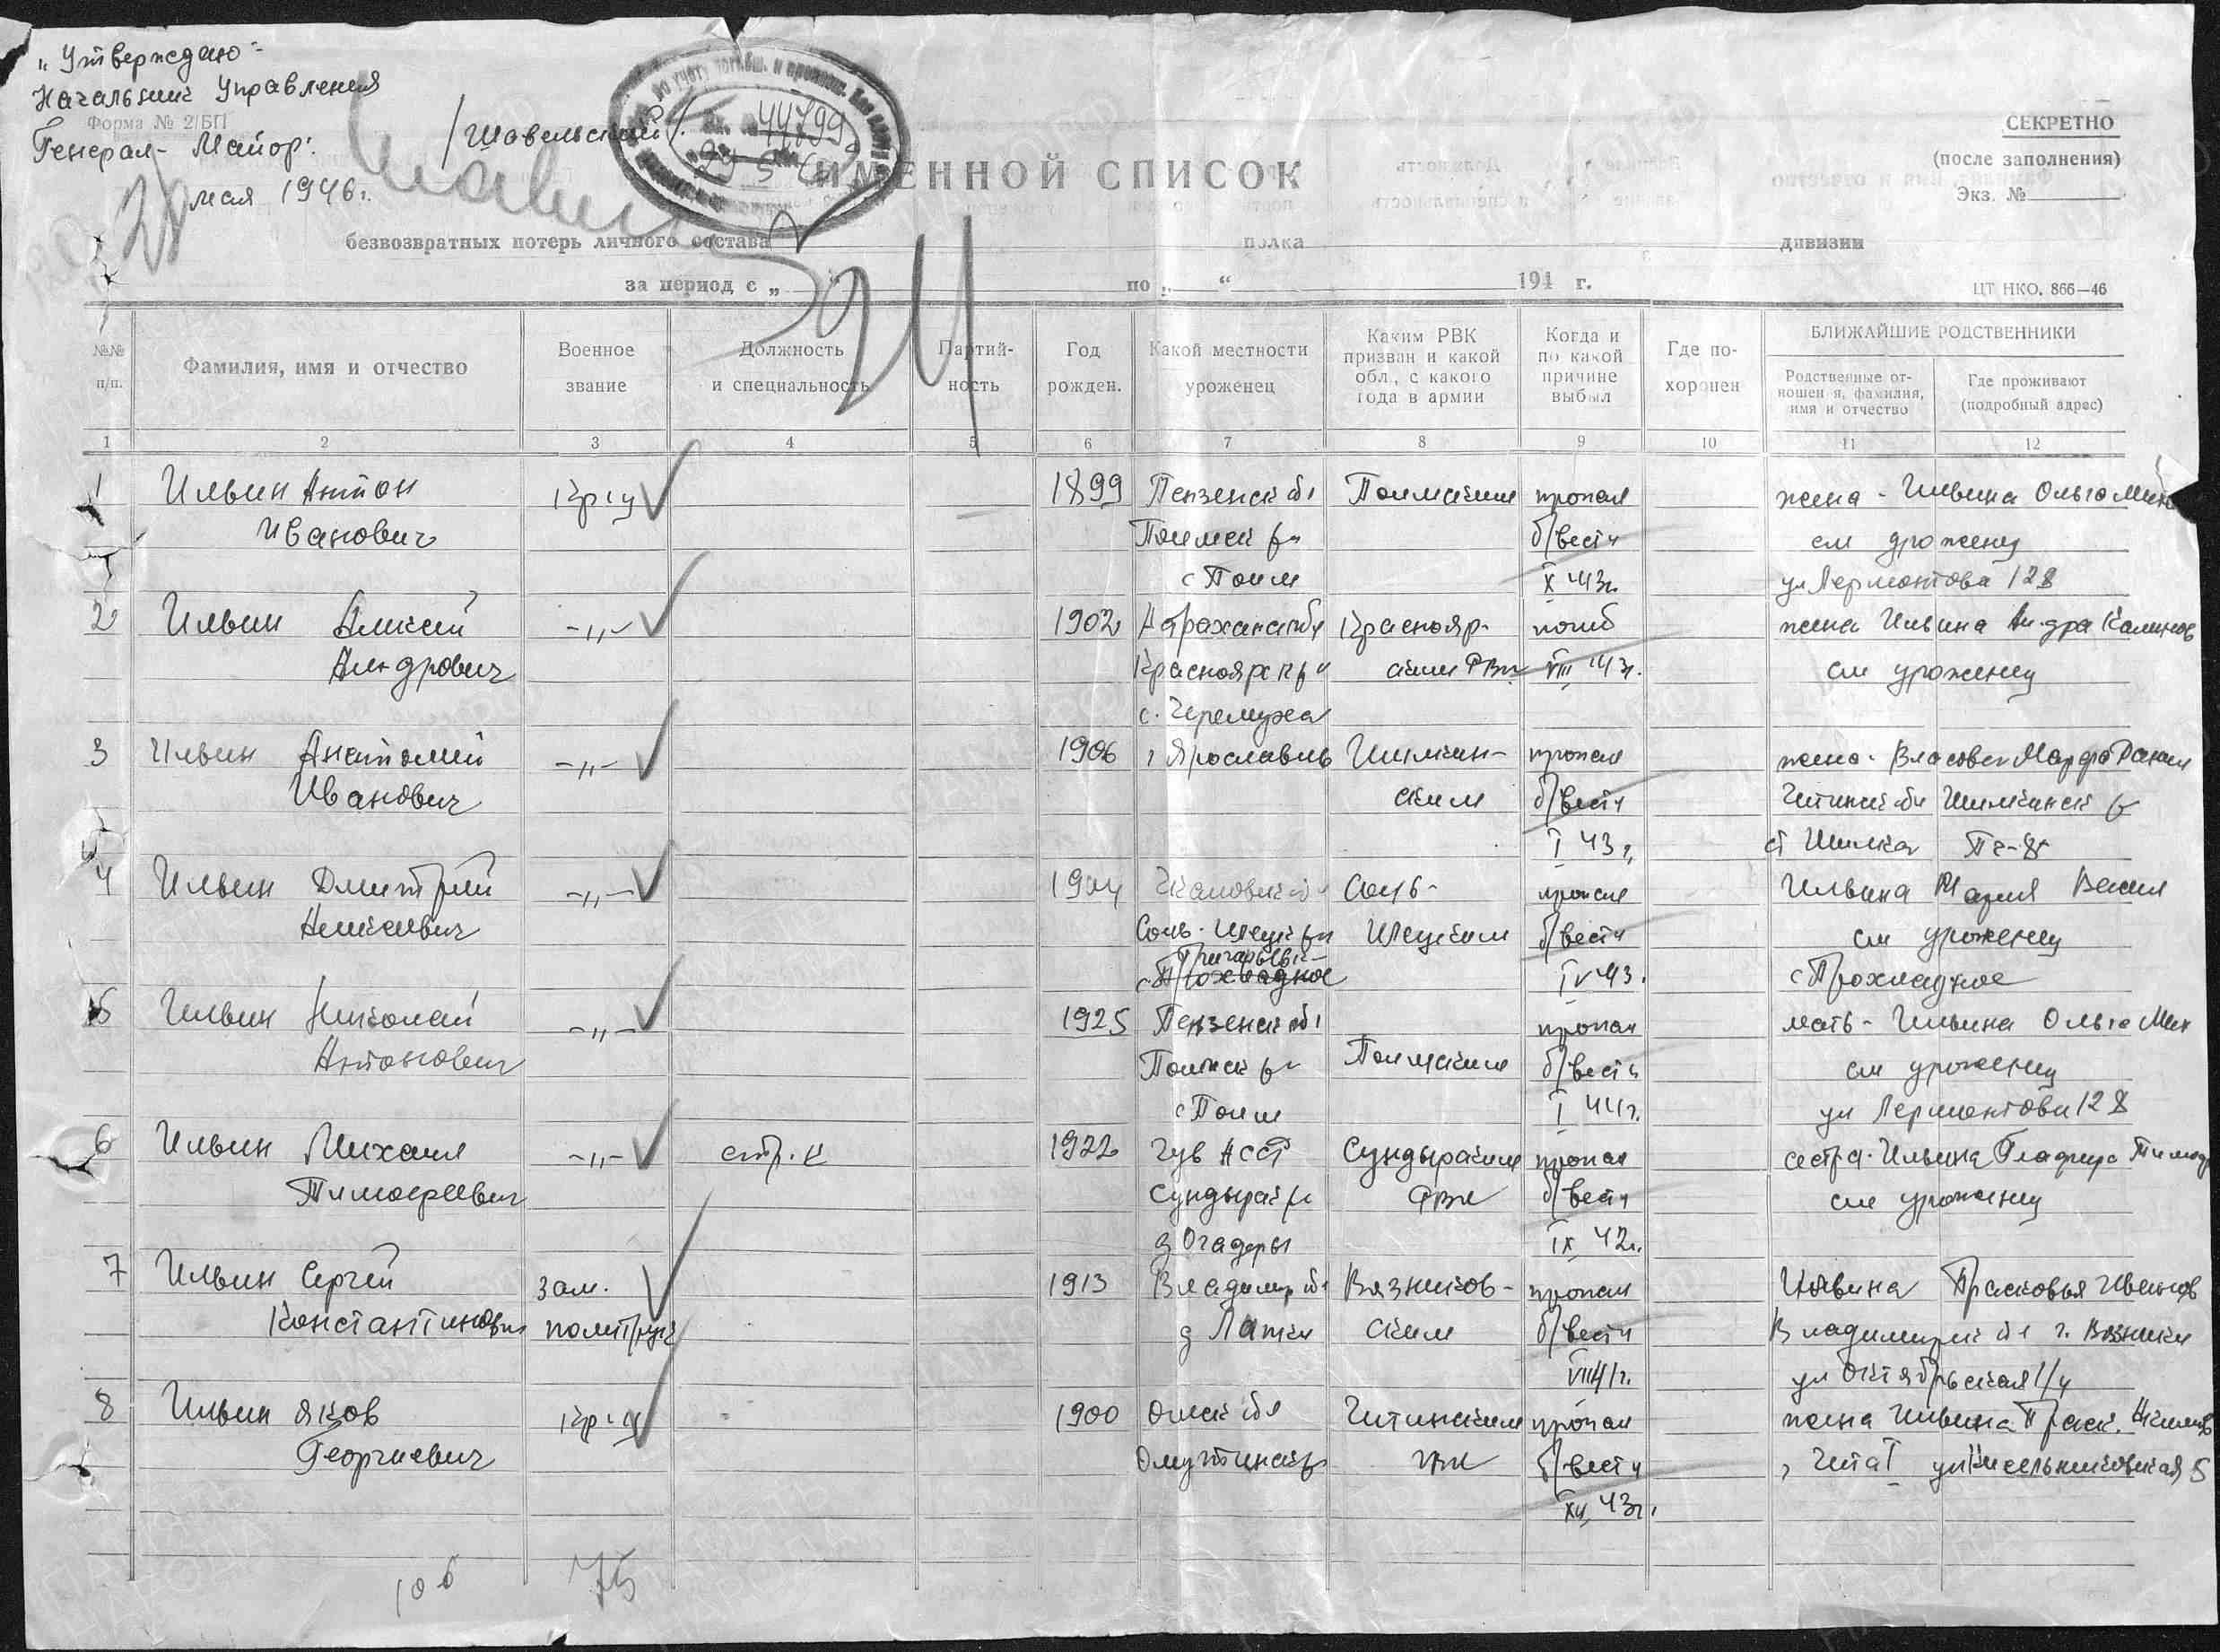 „Утверждаю"
Начальник Управления
Форма № 2/БП
Генерал-Майор:
/Шавельский/
28 мая 1946г.
44799
СЕКРЕТНО
(после заполнения)
Экз. №
ИМЕННОЙ СПИСОК
безвозвратных потерь личного состава полка дивизии
за период с „ “ по „ “ 194 г.
ЦТ НКО. 866—46
№№ п/п.
Фамилия, имя и отчество
Военное звание
Должность и специальность
Партий-ность
Год рожден.
Какой местности уроженец
Каким РВК призван и какой обл., с какого года в армии
Когда и по какой причине выбыл
Где по-хоронен
БЛИЖАЙШИЕ РОДСТВЕННИКИ
Родственные от-ношен я, фамилия, имя и отчество
Где проживают (подробный адрес)
1 2 3 4 5 6 7 8 9 10 11 12
1 Ильин Антон кр-ц 1899 Пензенск обл Поимским пропал жена - Ильина Ольга Мих
Иванович Поимск р-н б/вести см уроженец
с Поим X 43г. ул Лермонтова 128
2 Ильин Алексей -„- 1902 Астраханс обл Краснояр- погиб жена Ильина Ан-дра Калинов
Ал-ндрович Красноярск р-н ским РВК VIII 43г. см уроженец
с. Черемуха
3 Ильин Анатолий -„- 1906 г Ярославль Шилкин- пропал жена - Власова Марфа
Иванович ским б/вести Читинск обл Шилкинск р
I 43г. ст Шилка
4 Ильин Дмитрий -„- 1904 Чкаловск обл Соль- пропал Ильина Мария Васил
Алексеевич Соль-Илецк р-н Илецким б/вести см уроженец
с. Прохладное IV 43. с Прохладное
5 Ильин Николай -„- 1925 Пензенск обл пропал мать - Ильина Ольга Мих
Антонович Поимск р-н Поимским б/вести см уроженец
с Поим I 44г. ул Лермонтова 128
6 Ильин Михаил -„- стр-к 1922 Чув АССР Сундырским пропал сестра - Ильина Гладира Тимоф
Тимофеевич Сундырск р-н РВК б/вести см уроженец
д Огадеры IX 42г.
7 Ильин Сергей зам. 1913 Владимир обл Вязников- пропал Ильина Прасковья Иванов
Константинович политрук д Лапки ским б/вести Владимирск обл г. Вязники
VIII 41г. ул Октябрьская 1/4
8 Ильин Яков кр-ц 1900 Омск обл Читинским пропал жена Ильина Праск.
Георгиевич Омутинск р б/вести г Чита I
XII 43г.
106 75